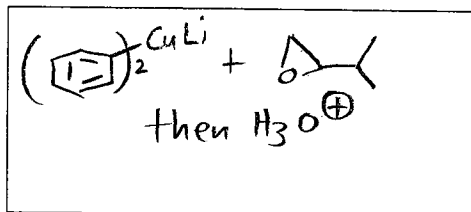 ( )2 CuLi + O
then H3O⊕